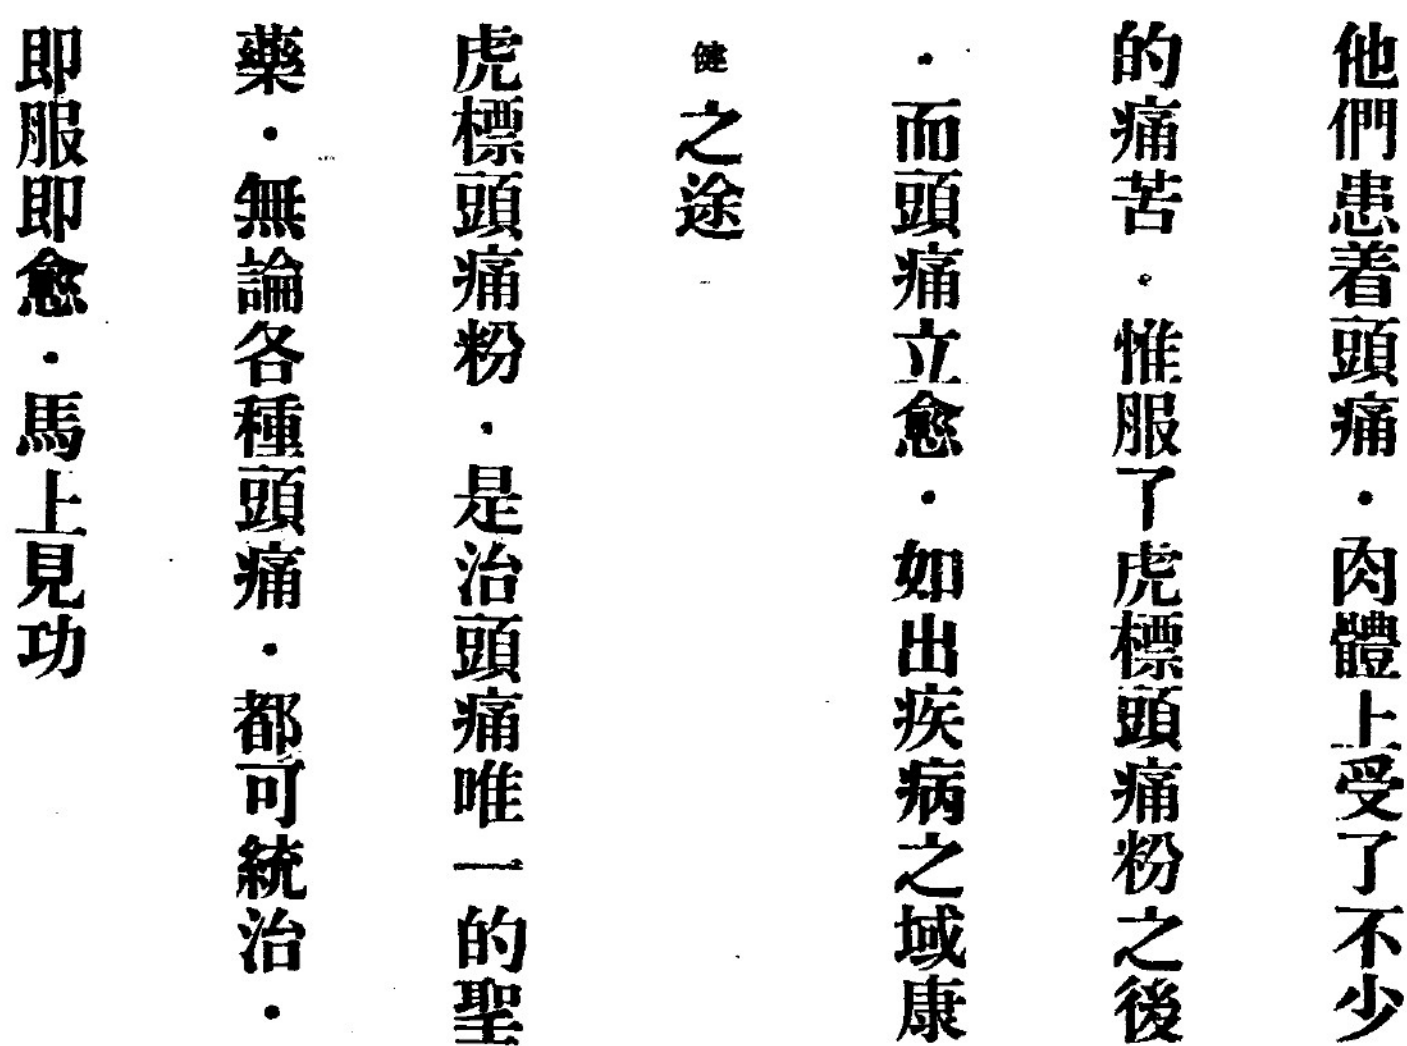 他們患着頭痛．肉體上受了不少
的痛苦．惟服了虎標頭痛粉之後
．而頭痛立愈．如出疾病之域康
健之途
虎標頭痛粉．是治頭痛唯一的聖
藥．無論各種頭痛．都可統治．
即服即愈．馬上見功